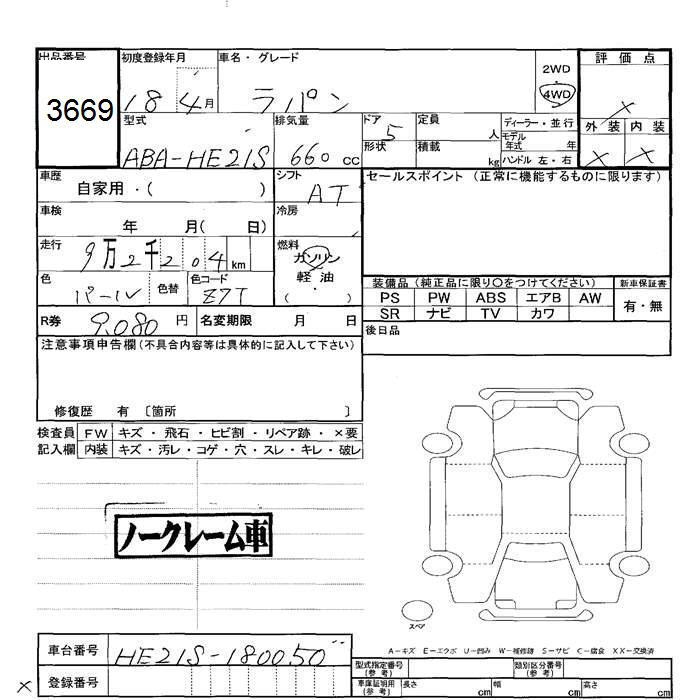 出品番号
3669
初度登録年月
18 4月
車名・グレード
ラパン
2WD
4WD
評価点
×
外装 内装
× ×
型式
ABA-HE21S
排気量
660 cc
ドア 5
形状
定員 人
積載 kg
ディーラー・並行
モデル年式 年
ハンドル 左・右
車歴
自家用・( )
シフト
AT
セールスポイント (正常に機能するものに限ります)
車検
年 月( 日)
冷房
走行
9万2千204 km
燃料
ガソリン
軽油
( )
色
パール
色替
色コード
Z7T
装備品(純正品に限り○をつけてください)
新車保証書
PS PW ABS エアB AW
SR ナビ TV カワ
有・無
R券 9,080 円
名変期限 月 日
後日品
注意事項申告欄(不具合内容等は具体的に記入して下さい)
修復歴 有 〔箇所 〕
検査員 FW キズ・飛石・ヒビ割・リペア跡・×要
記入欄 内装 キズ・汚レ・コゲ・穴・スレ・キレ・破レ
ノークレーム車
スペア
A-キズ E-エクボ U-凹み W-補修跡 S-サビ C-腐食 XX-交換済
車台番号
HE21S-180050
× 登録番号
型式指定番号(参考)
類別区分番号(参考)
車庫証明用(参考) 長さ cm 幅 cm 高さ cm